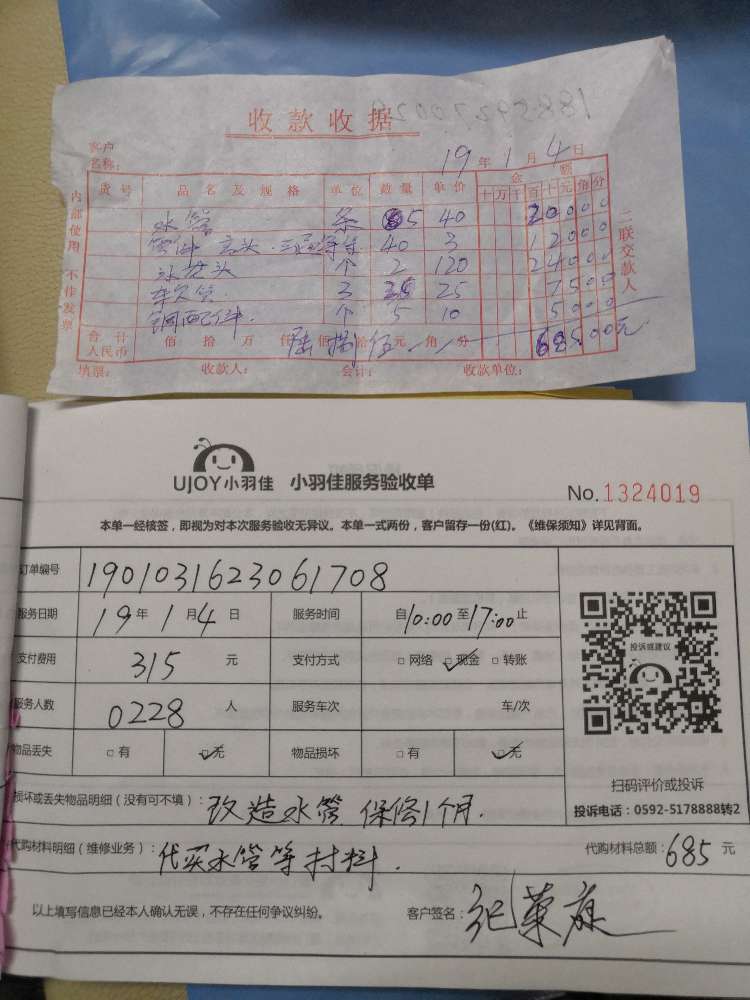 收款收据
客户
名称：
19年1月4日
货号 品名及规格 单位 数量 单价 金额
十万千百十元角分
水管 条 5 40 20000
管件 弯头.三通等 40 3 12000
水龙头 个 2 120 24000
25 7500
铜配件. 个 5 10 5000
合计
人民币 佰拾万仟佰拾元角分 68500元
填票： 收款人： 会计： 收款单位：
内部使用 不作发票
二联交款人
UJOY小羽佳 小羽佳服务验收单
No.1324019
本单一经核签，即视为对本次服务验收无异议。本单一式两份，客户留存一份(红)。《维保须知》详见背面。
订单编号 1901031623061708
服务日期 19年1月4日 服务时间 自10:00至17:00止
支付费用 315元 支付方式 □网络 □现金 □转账
服务人数 0228人 服务车次 车/次
物品丢失 □有 □无 物品损坏 □有 □无
投诉或建议
扫码评价或投诉
投诉电话：0592-5178888转2
损坏或丢失物品明细（没有可不填）：改造水管 保修1个月.
代购材料明细（维修业务）：代买水管等材料. 代购材料总额：685元
以上填写信息已经本人确认无误，不存在任何争议纠纷。 客户签名：